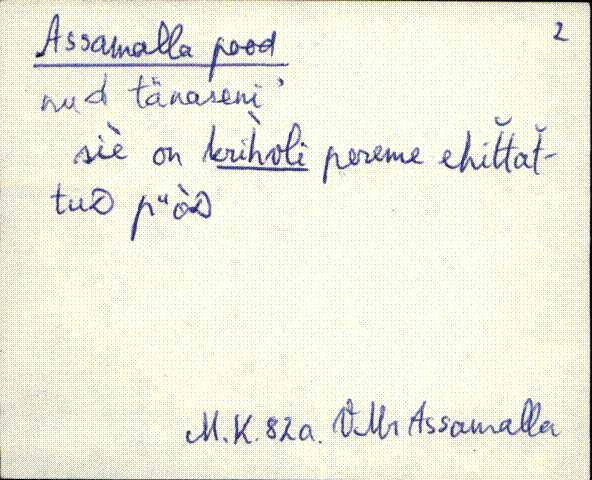 2
Assamalla pood
nud tänaseni'
siè on krìhvli pereme ehit̆t̆at̆-
tuD pᵘòD
M.K. 82a. VMr Assamalla